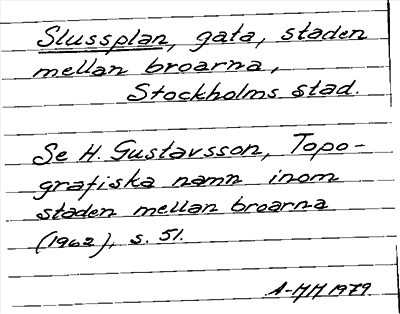 Slussplan, gata, staden
mellan broarna,
Stockholms stad.
Se H. Gustavsson, Topo-
grafiska namn inom
staden mellan broarna
(1962), s. 51.
A-HH 1979